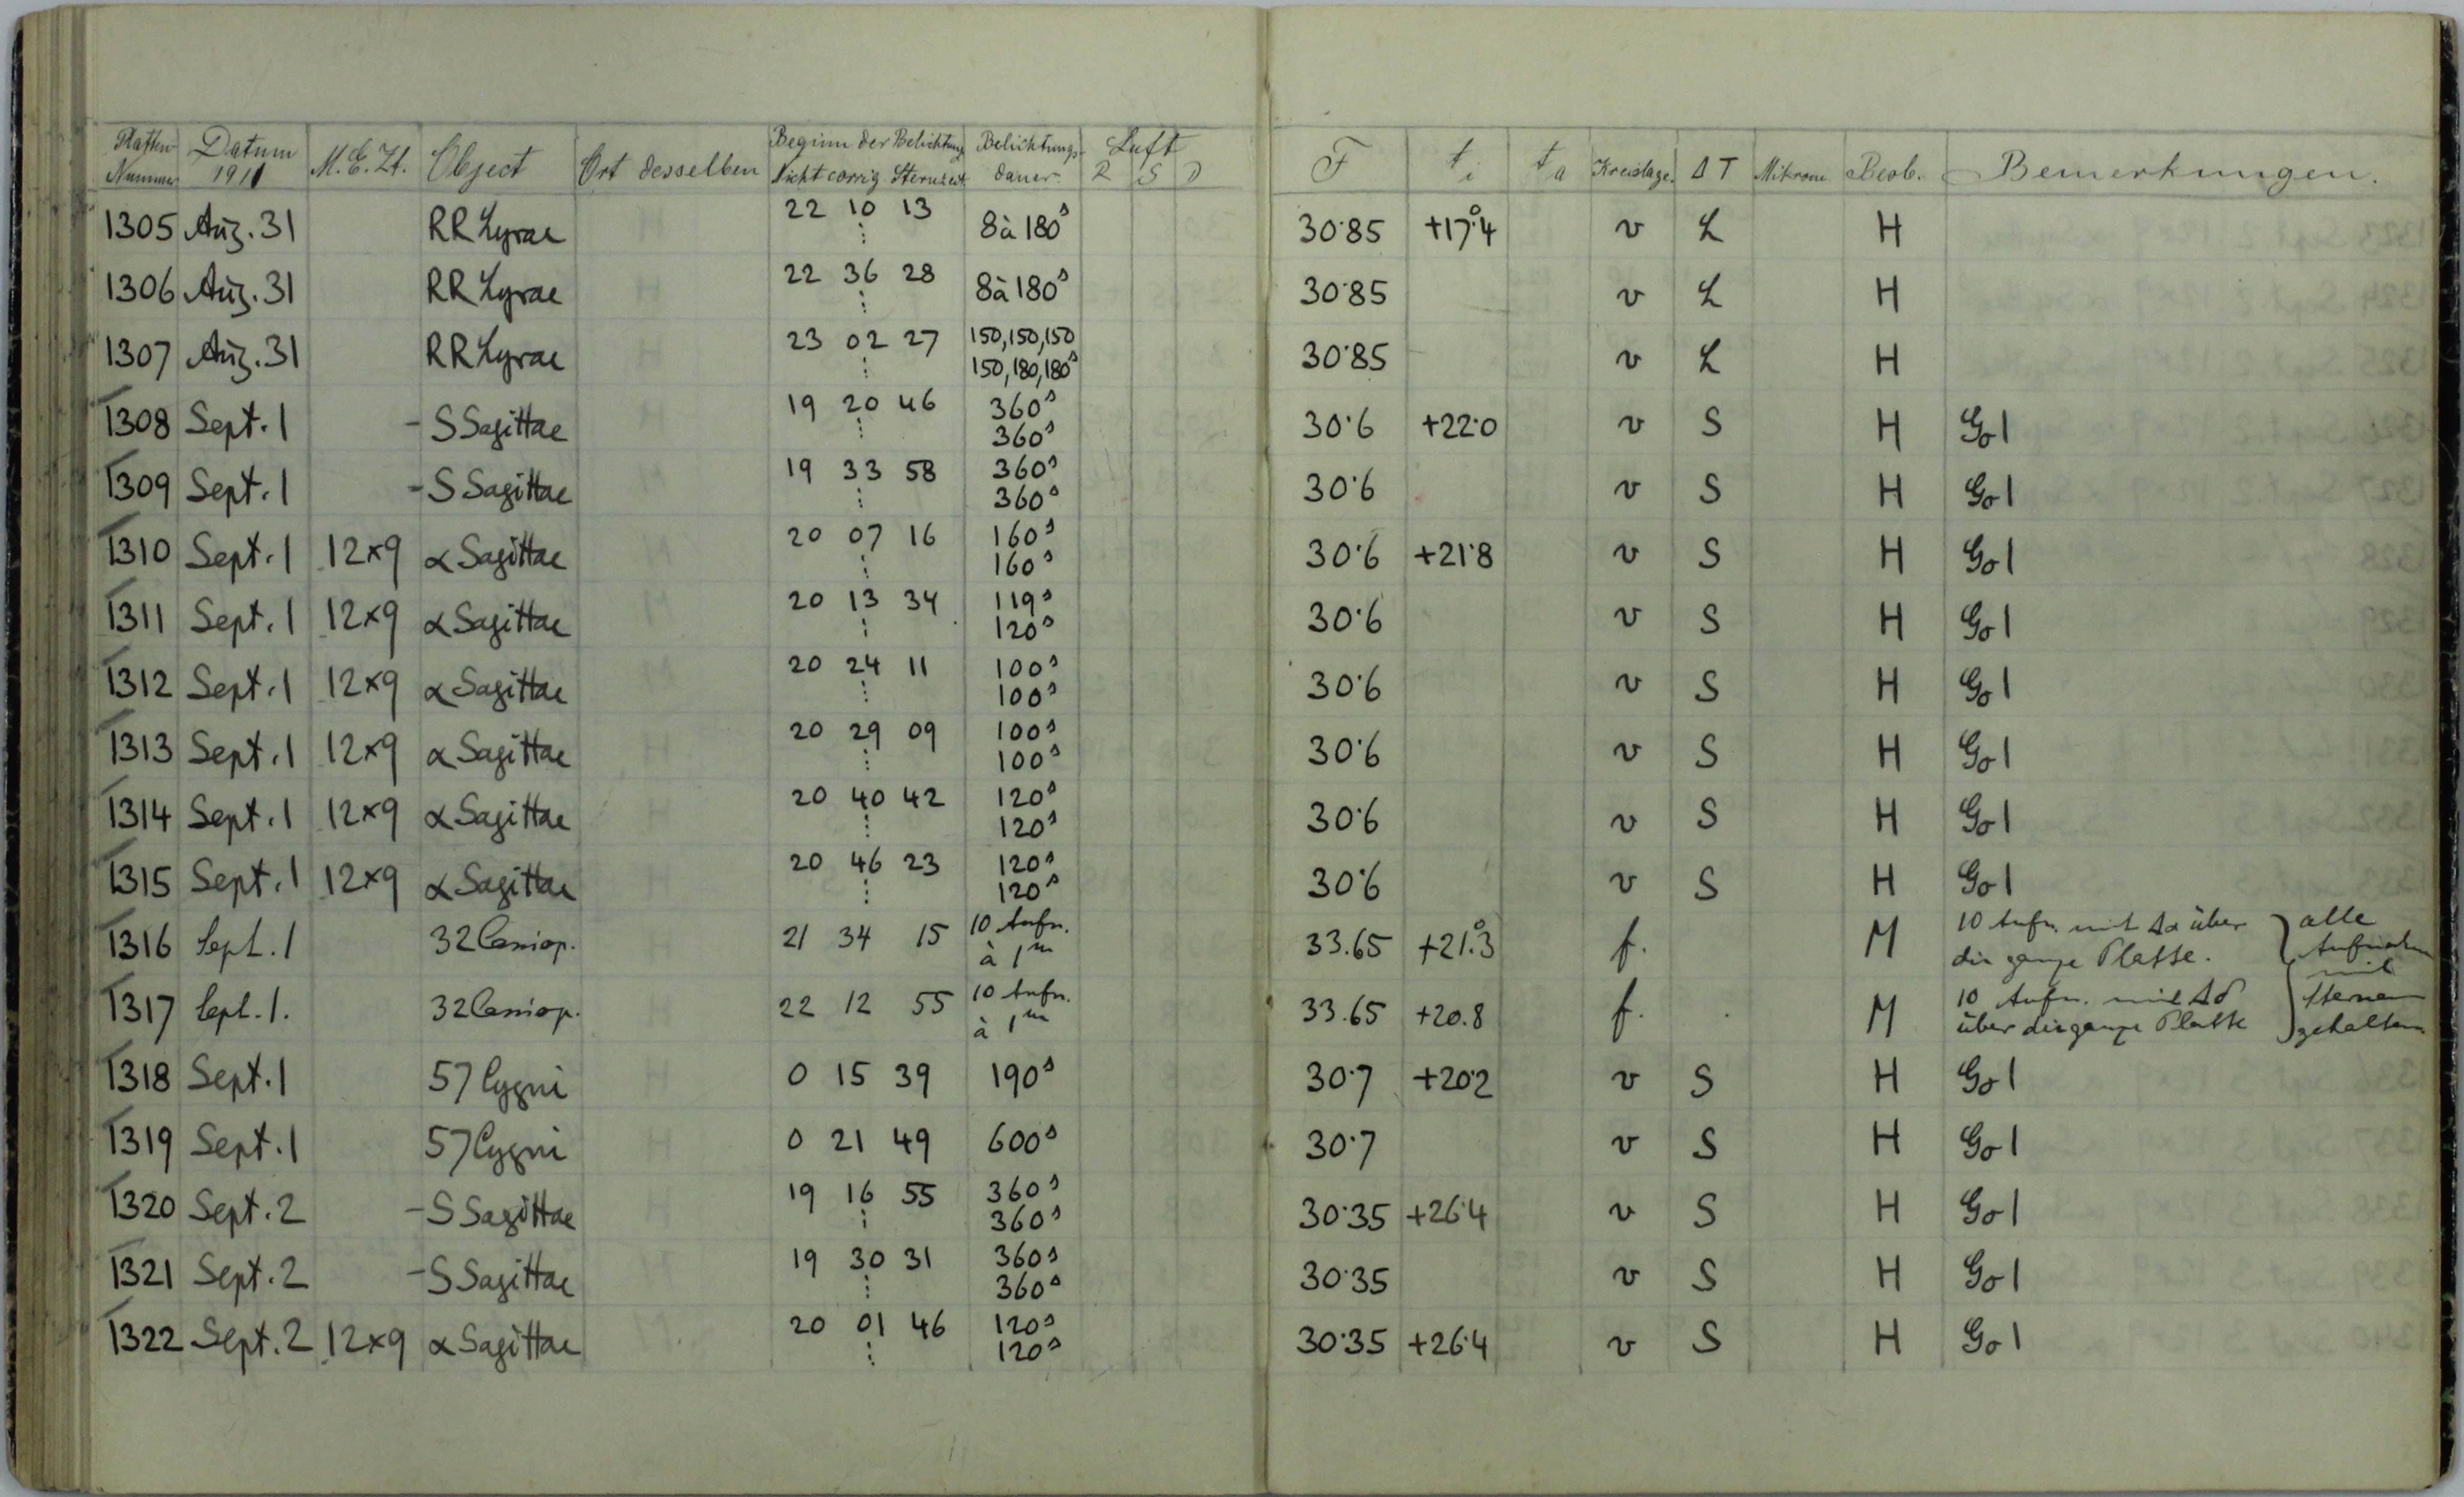 Platten- Nummer Datum 1911 M.E.Zt. Object Ort desselben Beginn der Belichtung Nicht corrig Sternzeit. Belichtungs- dauer. Luft R S D F ti ta Kreislage. ΔT Mikrom. Beob. Bemerkungen.
1305 Aug. 31 RR Lyrae 22 10 13 ⋮ 8 à 180ˢ 30·85 +17°.4 v L H
1306 Aug. 31 RR Lyrae 22 36 28 ⋮ 8 à 180ˢ 30·85 v L H
1307 Aug. 31 RR Lyrae 23 02 27 ⋮ 150, 150, 150 150, 180, 180ˢ 30·85 v L H
1308 Sept. 1 - S Sagittae 19 20 46 ⋮ 360ˢ 360ˢ 30·6 +22·0 v S H Go 1
1309 Sept. 1 - S Sagittae 19 33 58 ⋮ 360ˢ 360ˢ 30·6 v S H Go 1
1310 Sept. 1 12×9 α Sagittae 20 07 16 ⋮ 160ˢ 160ˢ 30·6 +21·8 v S H Go 1
1311 Sept. 1 12×9 α Sagittae 20 13 34 ⋮ 119ˢ 120ˢ 30·6 v S H Go 1
1312 Sept. 1 12×9 α Sagittae 20 24 11 ⋮ 100ˢ 100ˢ 30·6 v S H Go 1
1313 Sept. 1 12×9 α Sagittae 20 29 09 ⋮ 100ˢ 100ˢ 30·6 v S H Go 1
1314 Sept. 1 12×9 α Sagittae 20 40 42 ⋮ 120ˢ 120ˢ 30·6 v S H Go 1
1315 Sept. 1 12×9 α Sagittae 20 46 23 ⋮ 120ˢ 120ˢ 30·6 v S H Go 1
1316 Sept. 1 32 Cassiop. 21 34 15 10 Aufn. à 1ᵐ 33.65 +21°.3 f. M 10 Aufn. mit Δα über die ganze Platte. } alle Aufnahmen
1317 Sept. 1. 32 Cassiop. 22 12 55 10 Aufn. à 1ᵐ 33.65 +20.8 f. M 10 Aufn. mit Δδ über die ganze Platte } mit Sternen gehalten
1318 Sept. 1 57 Cygni 0 15 39 190ˢ 30·7 +20·2 v S H Go 1
1319 Sept. 1 57 Cygni 0 21 49 600ˢ 30·7 v S H Go 1
1320 Sept. 2 - S Sagittae 19 16 55 ⋮ 360ˢ 360ˢ 30·35 +26·4 v S H Go 1
1321 Sept. 2 - S Sagittae 19 30 31 ⋮ 360ˢ 360ˢ 30·35 v S H Go 1
1322 Sept. 2 12×9 α Sagittae 20 01 46 ⋮ 120ˢ 120ˢ 30·35 +26·4 v S H Go 1